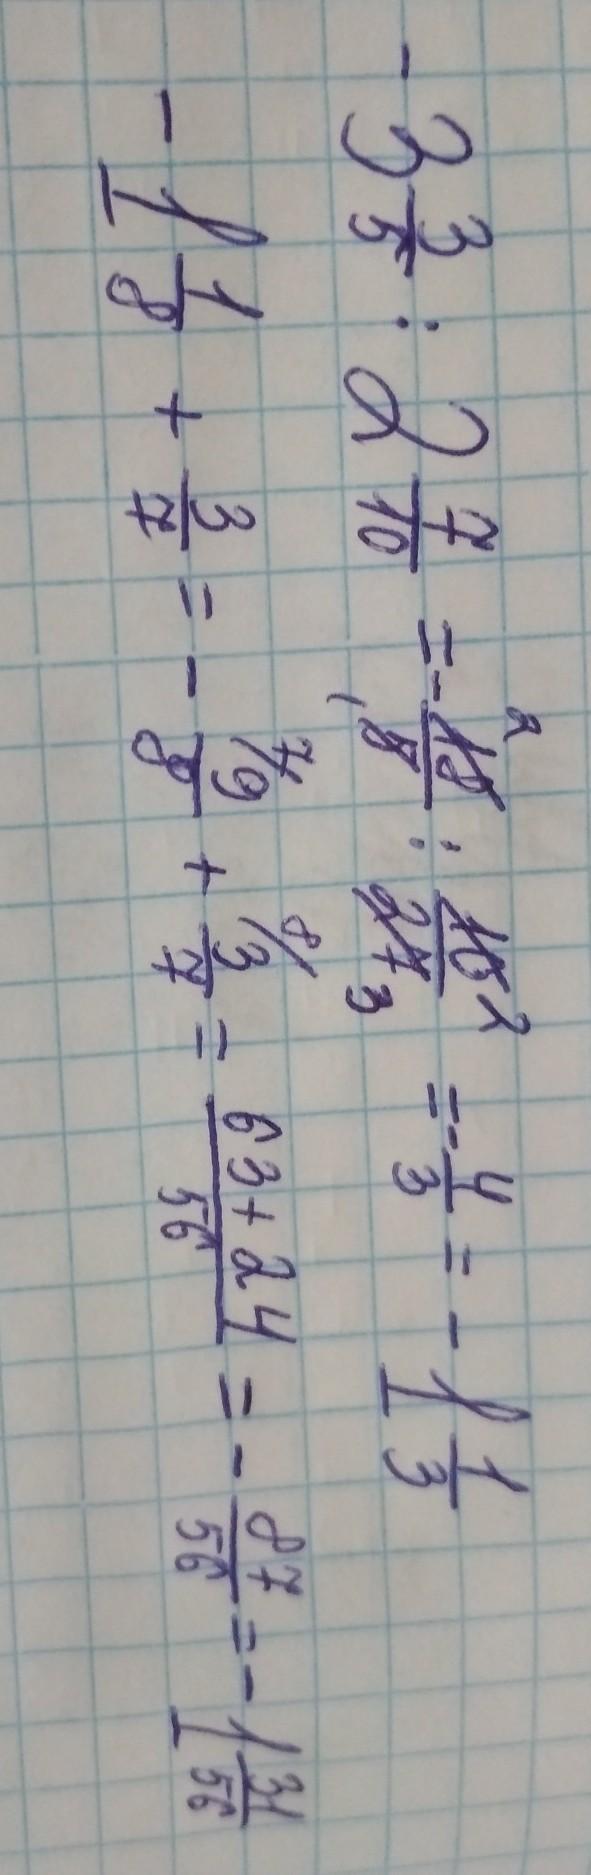 - 3 3/5 : 2 7/10 = - 18/5 : 10/27 = - 4/3 = - 1 1/3
- 1 1/8 + 3/7 = - 9/8 + 3/7 = 63+24/56 = - 87/56 = - 1 31/56